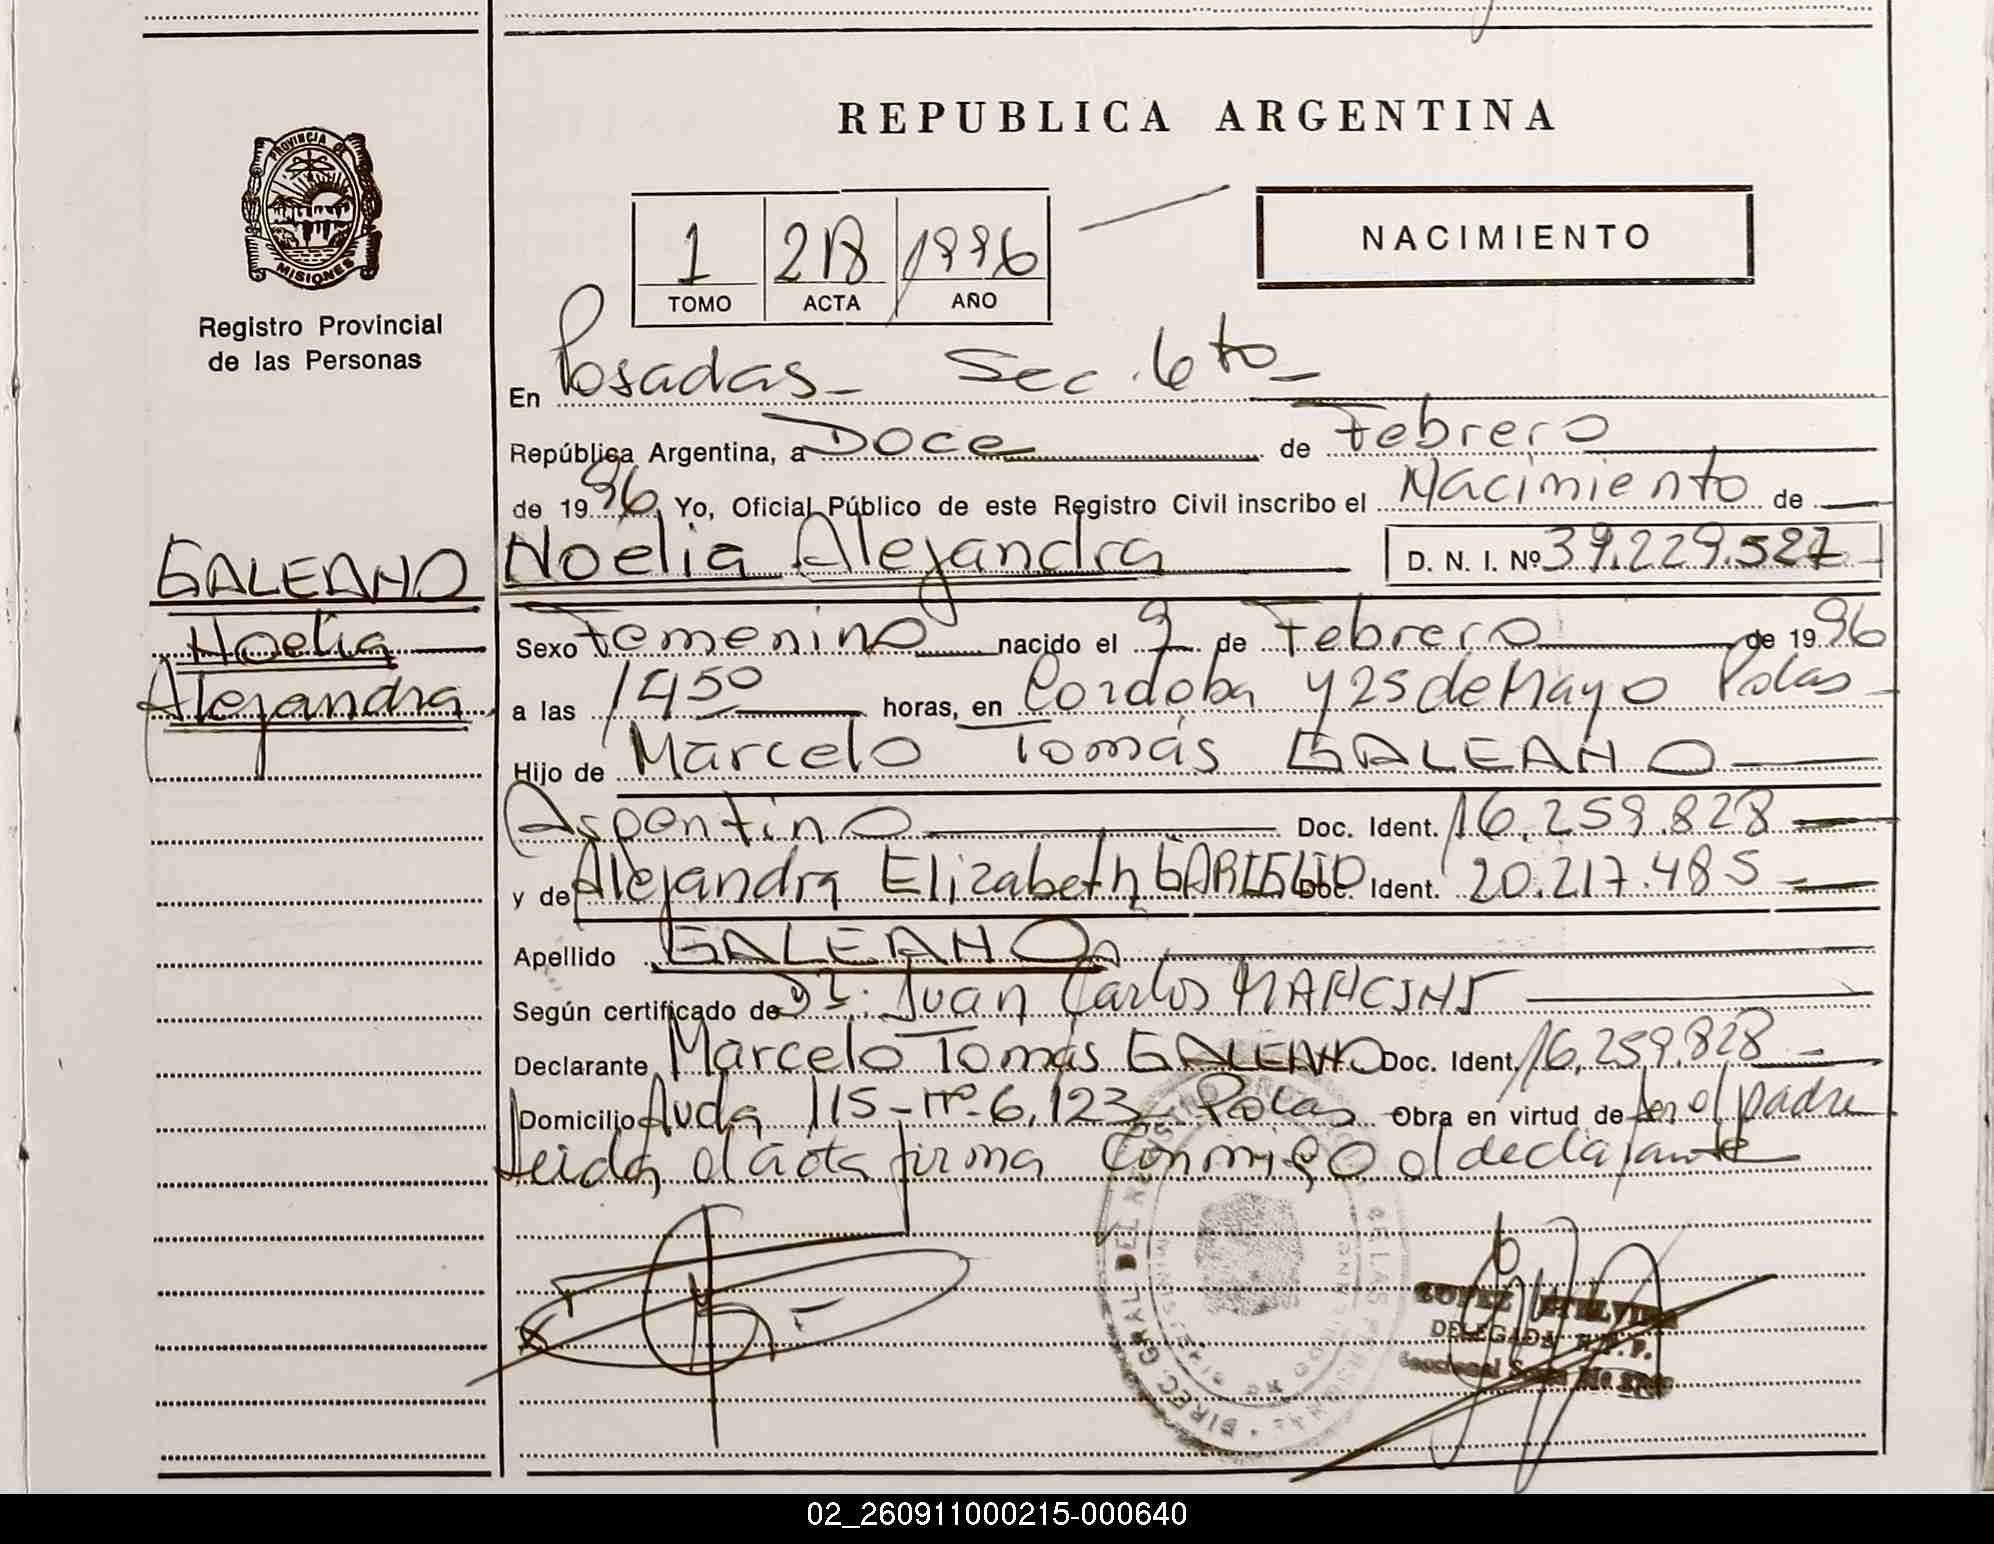 REPUBLICA ARGENTINA
PROVINCIA DE
MISIONES
Registro Provincial
de las Personas
1 218 1996
TOMO ACTA AÑO
NACIMIENTO
En Posadas - Sec. 6to -
República Argentina, a Doce de Febrero
de 1996 Yo, Oficial Público de este Registro Civil inscribo el Nacimiento de
GALEANO
Noelia
Alejandra
Noelia Alejandra D. N. I. Nº 39.229.527
Sexo Femenino nacido el 9 de Febrero de 1996
a las 1450 horas, en Cordoba y 25 de Mayo Pdas
Hijo de Marcelo Tomás GALEANO
Argentino Doc. Ident. 16.259.828
y de Alejandra Elizabeth Doc. Ident. 20.217.485
Apellido GALEANO
Según certificado de Dr. Juan Carlos MANCINI
Declarante Marcelo Tomás GALEANO Doc. Ident. 16.259.828
Domicilio Avda 115 - nº 6.123 Pdas Obra en virtud de ser el padre
Leida el acta firma conmigo el declarante
LOPEZ ETELVINA
DELEGADA R.P.P.
02_260911000215-000640